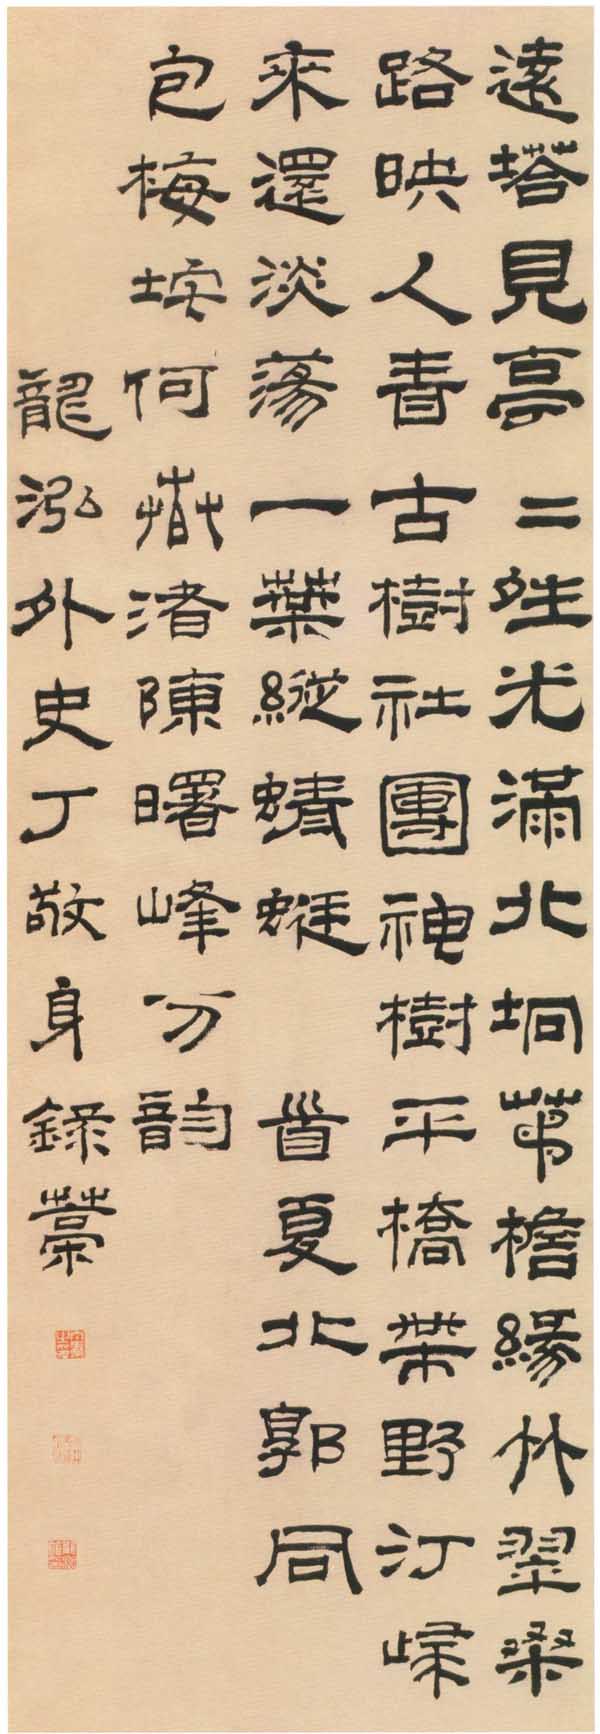 遠塔見亭二夝光滿北坰茅檐緣竹翠桑
路映人青古樹社團神樹平橋帶野汀
來還淡蕩一葉縱蜻蜓 首夏北郭同
包梅垵何春渚陳曙峰分韵
龍泓外史丁敬身錄藁